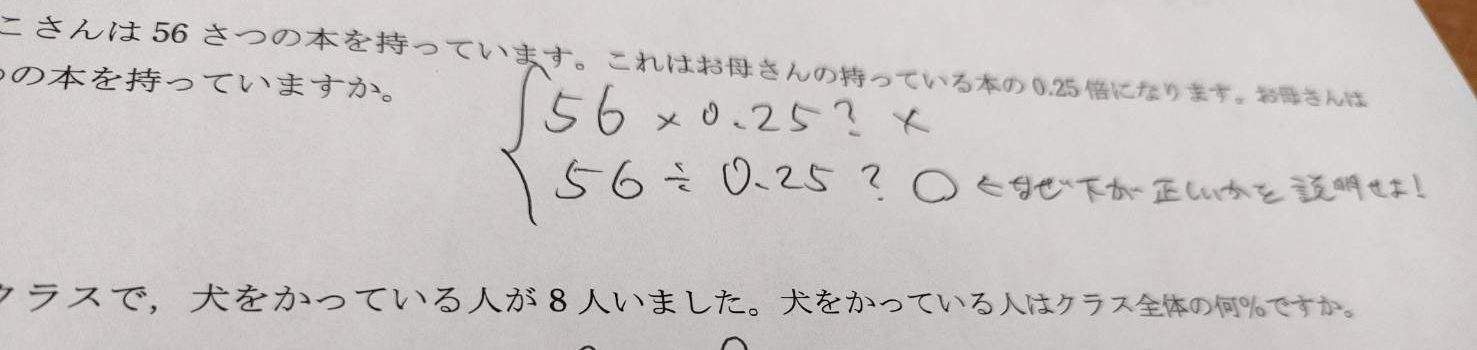 こさんは 56 さつの本を持っています。これはお母さんの持っている本の 0.25 倍になります。お母さんは
の本を持っていますか。
56 × 0.25 ? ×
56 ÷ 0.25 ? ○ ←なぜ下が正しいかを説明せよ!
クラスで，犬をかっている人が 8 人いました。犬をかっている人はクラス全体の何%ですか。